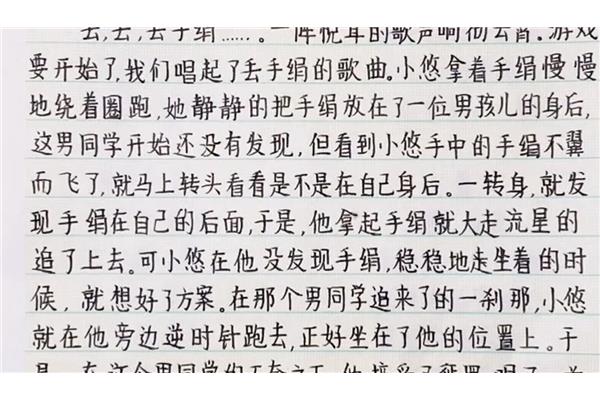 丢,丢,丢手绢……。一阵悦耳的歌声响彻云霄。游戏
要开始了,我们唱起了丢手绢的歌曲。小悠拿着手绢慢慢
地绕着圈跑,她静静的把手绢放在了一位男孩儿的身后,
这男同学开始还没有发现,但看到小悠手中的手绢不翼
而飞了,就马上转头看看是不是在自己身后。一转身,就发
现手绢在自己的后面,于是,他拿起手绢就大走流星的
追了上去。可小悠在他没发现手绢,稳稳地走坐着的时
候,就想好了方案。在那个男同学追来了的一刹那,小悠
就在他旁边逆时针跑去,正好坐在了他的位置上。于
是,在这个男同学的